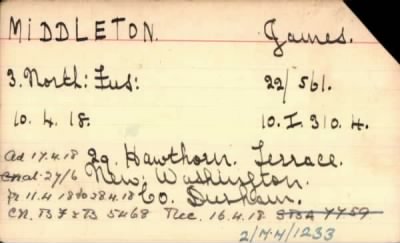 MIDDLETON. James.
3. North: Fus: 22/561.
10. 4. 18. 10. I. 310. 4.
ad 17.4.18 29. Hawthorn. Terrace.
27/6 New: Washington.
11.4.18 to 28.4.18 Co. Durham.
CN. B 7 x B 5468 Rec. 16.4.18 SBA 7759
2/M.H/1233